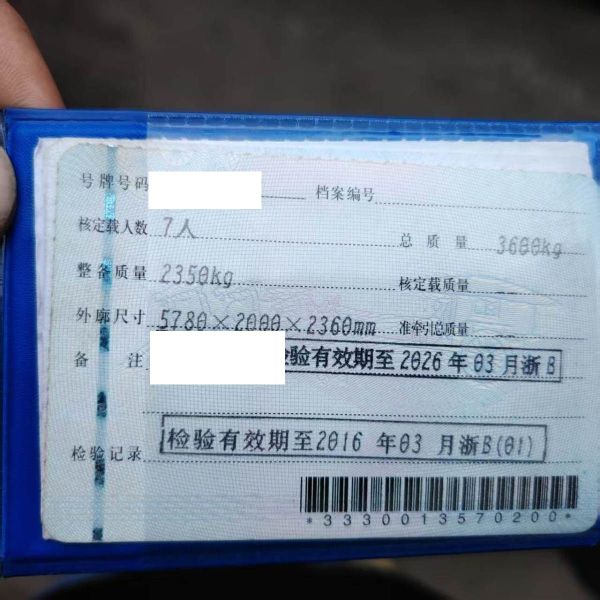 号牌号码 档案编号
核定载人数 7人 总质量 3600kg
整备质量 2350kg 核定载质量
外廓尺寸 5780×2000×2360mm 准牵引总质量
备注 检验有效期至2026年03月浙B
检验记录 检验有效期至2016年03月浙B(01)
*3330013570200*